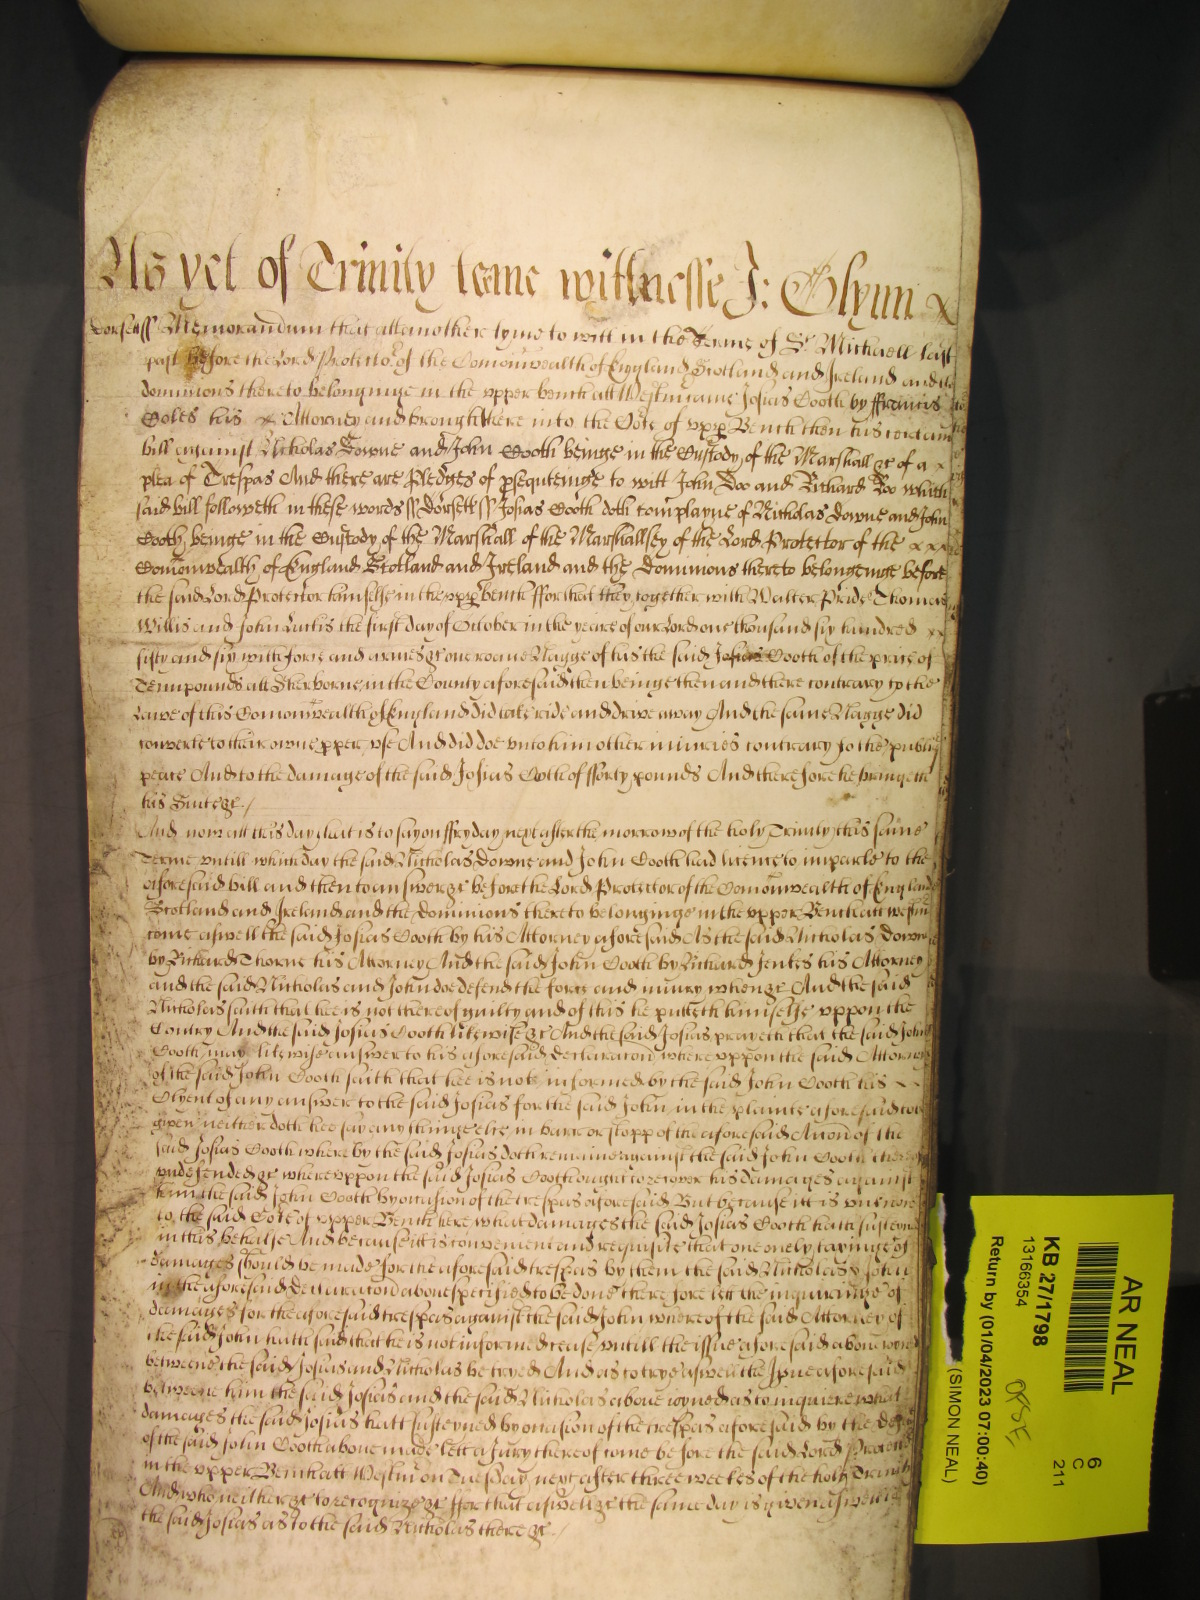 As yet of Trinity terme wittnesse J: Glynn x
Dorsett ss Memorandum that att another tyme to witt in the Terme of St Michaell last
past before the Lord Protector of the Comonwealth of England Scotland and Ireland and the
dominions thereto belonginge in the upper bench att Westm came Josias Cooth by ffrancis
Coles his x Attorney and brought here into the Cote of upp Bench then his certain
bill against Nicholas Downe and John Cooth beinge in the Custody of the Marshall &c of a x
plea of Trespas And there are Pledges of psequteinge to witt John Doo and Richard Roo which
said bill followeth in these words ss Dorsett ss Josias Cooth doth complayne of Nicholas Downe and John
Cooth beinge in the Custody of the Marshall of the Marshallsey of the Lord Protector of the x x x
Comonwealth of England Scotland and Ireland and the Dominions thereto belongeinge before
the said Lord Protector himselfe in the upp bench ffor that they together with Walter Pride Thomas
Willis and John Curtis the first day of October in the yeare of our Lord one thousand six hundred x x
fifty and six with force and armes &c one roane Nagge of his the said Josias Cooth of the price of
Tenn pounds att Sherborne in the County aforesaid then beinge then and there contrary to the
Lawe of this Comonwealth of England did take ride and drive away And the same Nagge did
converte to their owne pper use And did doe unto him other iniuries contrary to the publiq
peace And to the damage of the said Josias Coth of fforty pounds And therefore he bringeth
his Suite &c /
And now att this day that is to say on ffryday next after the morrow of the holy Trinity this same
Terme untill which day the said Nicholas Downe and John Cooth had licence to imparle to the
aforesaid bill and then to answer &c before the Lord Protector of the Comonwealth of England
Scotland and Ireland and the Dominions thereto belonginge in the upper Bench att Westm
come aswell the said Josias Cooth by his Attorney aforesaid As the said Nicholas Downe
by Richard Thorne his Attorney And the said John Cooth by Richard Jentes his Attorney
and the said Nicholas and John doe defend the force and iniury when &c And the said
Nicholas saith that hee is not thereof guilty and of this he putteth himselfe uppon the
Contry And the said Josias Cooth likewise &c And the said Josias prayeth that the said John
Cooth may likewise answer to his aforesaid declaration whereuppon the said Attorney
of the said John Cooth saith that hee is not informed by the said John Cooth his
Clyent of any answer to the said Josias for the said John in the plainte aforesaid to be
given neither doth hee say any thinge else in barr or stopp of the aforesaid Accon of the
said Josias Cooth whereby the said Josias doth remaine against the said John Cooth
undefended &c whereuppon the said Josias Cooth ought to recover his damages against
him the said John Cooth by occasion of the trespas aforesaid But because itt is unknowne
to the said Cote of upper Bench here what damages the said Josias Cooth hath susteyned
in this behalfe And because itt is convenient and requisite that one onely taxinge of
damages should be made for the aforesaid trespas by them the said Nicholas & John
in the aforesaid Declaration above specified to be done therefore lett the inquiringe of
damages for the aforesaid trespas against the said John whereof the said Attorney of
the said John hath said that he is not informed cease untill the issue aforesaid above ioyned
betweene the said Josias and Nicholas be tryed And as to trye aswell the Issue aforesaid
betweene him the said Josias and the said Nicholas above ioyned as to inquiere what
damages the said Josias hath susteyned by occasion of the trespas aforesaid by the
of the said John Cooth above made lett a Jury thereof come before the said Lord Protector
in the upper Bench att Westm on Tuesday next after three weekes of the holy Trinity
And who neither &c to recognize &c ffor that aswell &c the same day is given aswell to
the said Josias as to the said Nicholas there &c /
AR NEAL
6
C
211
KB 27/1798
13166354
Return by (01/04/2023 07:00:40)
(SIMON NEAL)